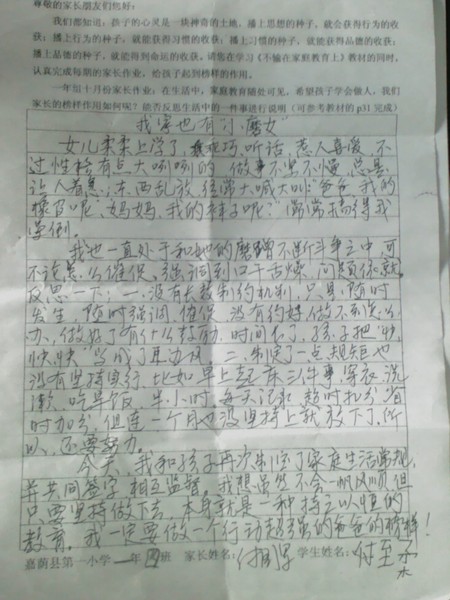 尊敬的家长朋友们您好：
我们都知道，孩子的心灵是一块神奇的土地，播上思想的种子，就会获得行为的收
获；播上行为的种子，就能获得习惯的收获；播上习惯的种子，就能获得品德的收获；
播上品德的种子，就能得到命运的收获。请您在学习《不输在家庭教育上》教材的同时，
认真完成每期的家长作业，给孩子起到榜样的作用。
一年组十月份家长作业，在生活中，家庭教育随处可见，希望孩子学会做人，我们
家长的榜样作用如何呢？能否反思生活中的一件事进行说明（可参考教材的p31完成）
我家也有"小磨女"
女儿柔柔上学了，乖巧、听话，惹人喜爱，不
过性格有点大咧咧的，做事不坚不慢，总是
让人着急；东西乱放，经常大喊大叫："爸爸，我的
橡皮呢""妈妈，我的袜子呢？"常常搞得我
晕倒。
我也一直处于和她的磨蹭不断斗争之中，可
不论怎么催促，强调到口干舌燥，问题依就。
反思一下：一、没有长效制约机制，只是随时
发生，随时强调、催促，没有约好做不到怎么
办，做好了有什么鼓励，时间长了，孩子把"快、
快、快"当成了耳边风。二、制定了一点规矩也
没有坚持实行，比如早上起床三件事：穿衣、洗
漱、吃早饭，半小时，每天记录，超时扣分，省
时加分，但连一个月也没坚持上就放下了。所
以，还要努力。
今天，我和孩子再次制定了家庭生活常规，
并共同签字，相互监督。我想虽然不会一帆风顺，但
只要坚持做下去，本身就是一种持之以恒的
教育。我一定要做一个行动超强的爸爸的榜样！
嘉荫县第一小学一年四班 家长姓名：付 学生姓名：付至